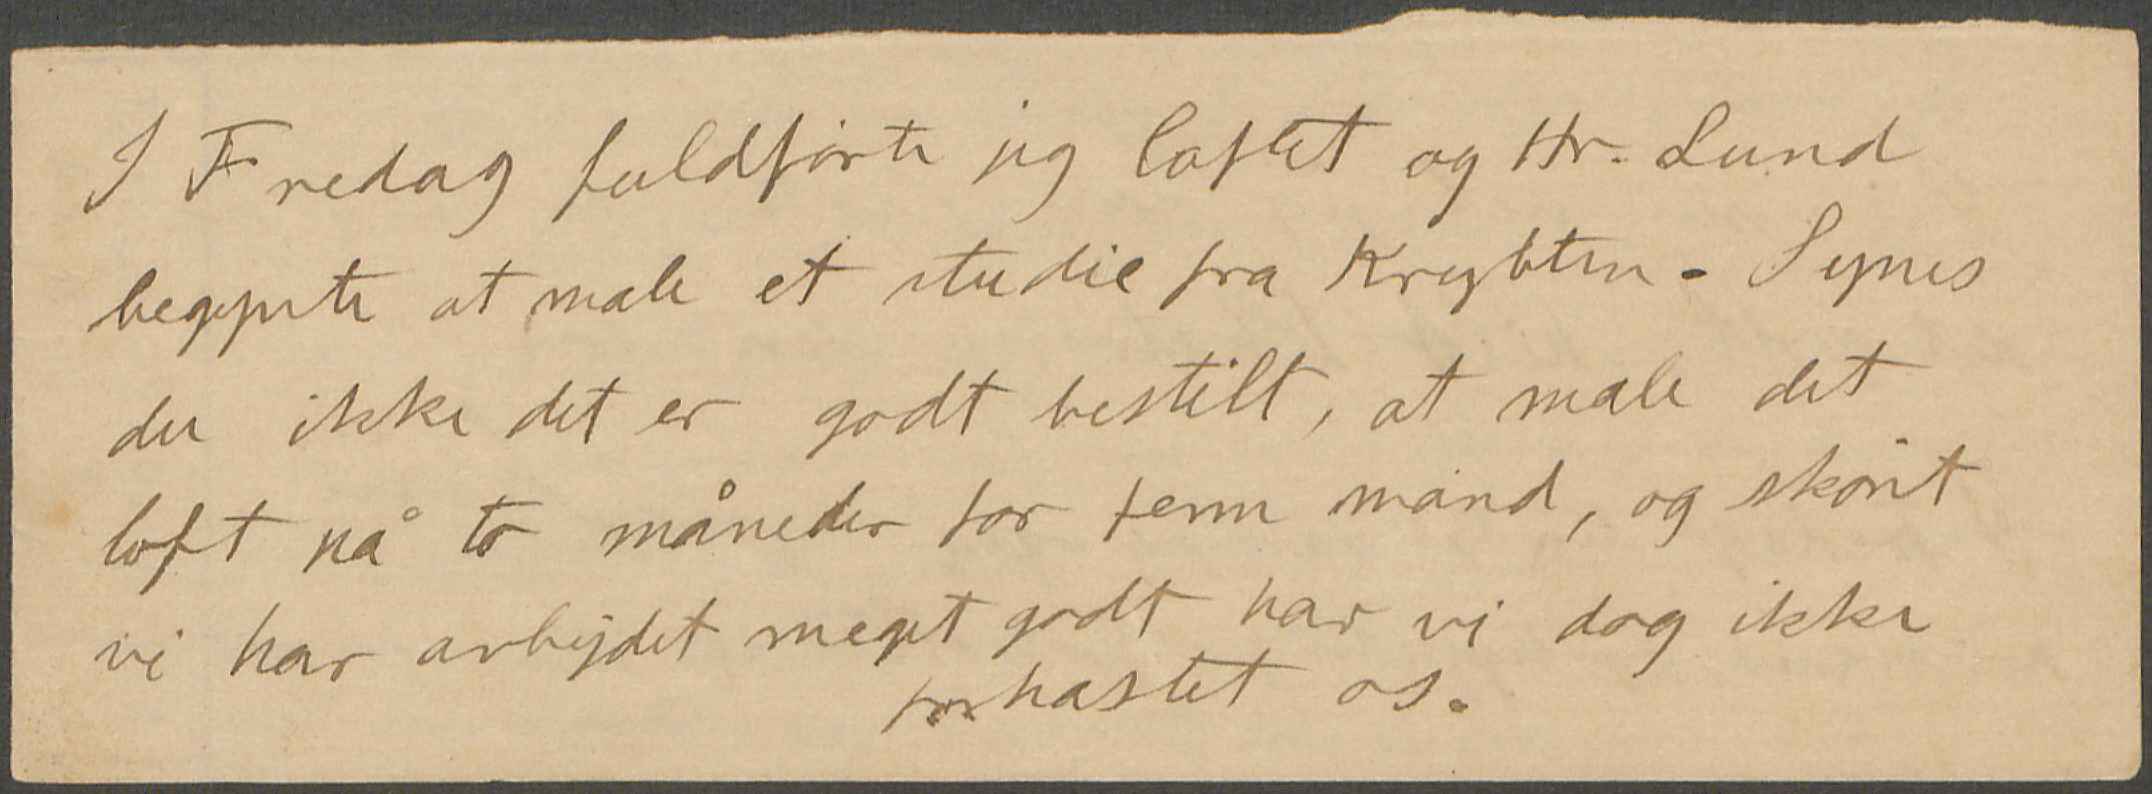 I Fredag fuldførte jeg loftet og Hr. Lund
begynte at male et studie fra Krybten. Synes
du ikke det er godt bestilt, at male det
loft på to måneder for fem mand, og skønt
vi har arbejdet meget godt har vi dog ikke
forhastet os.